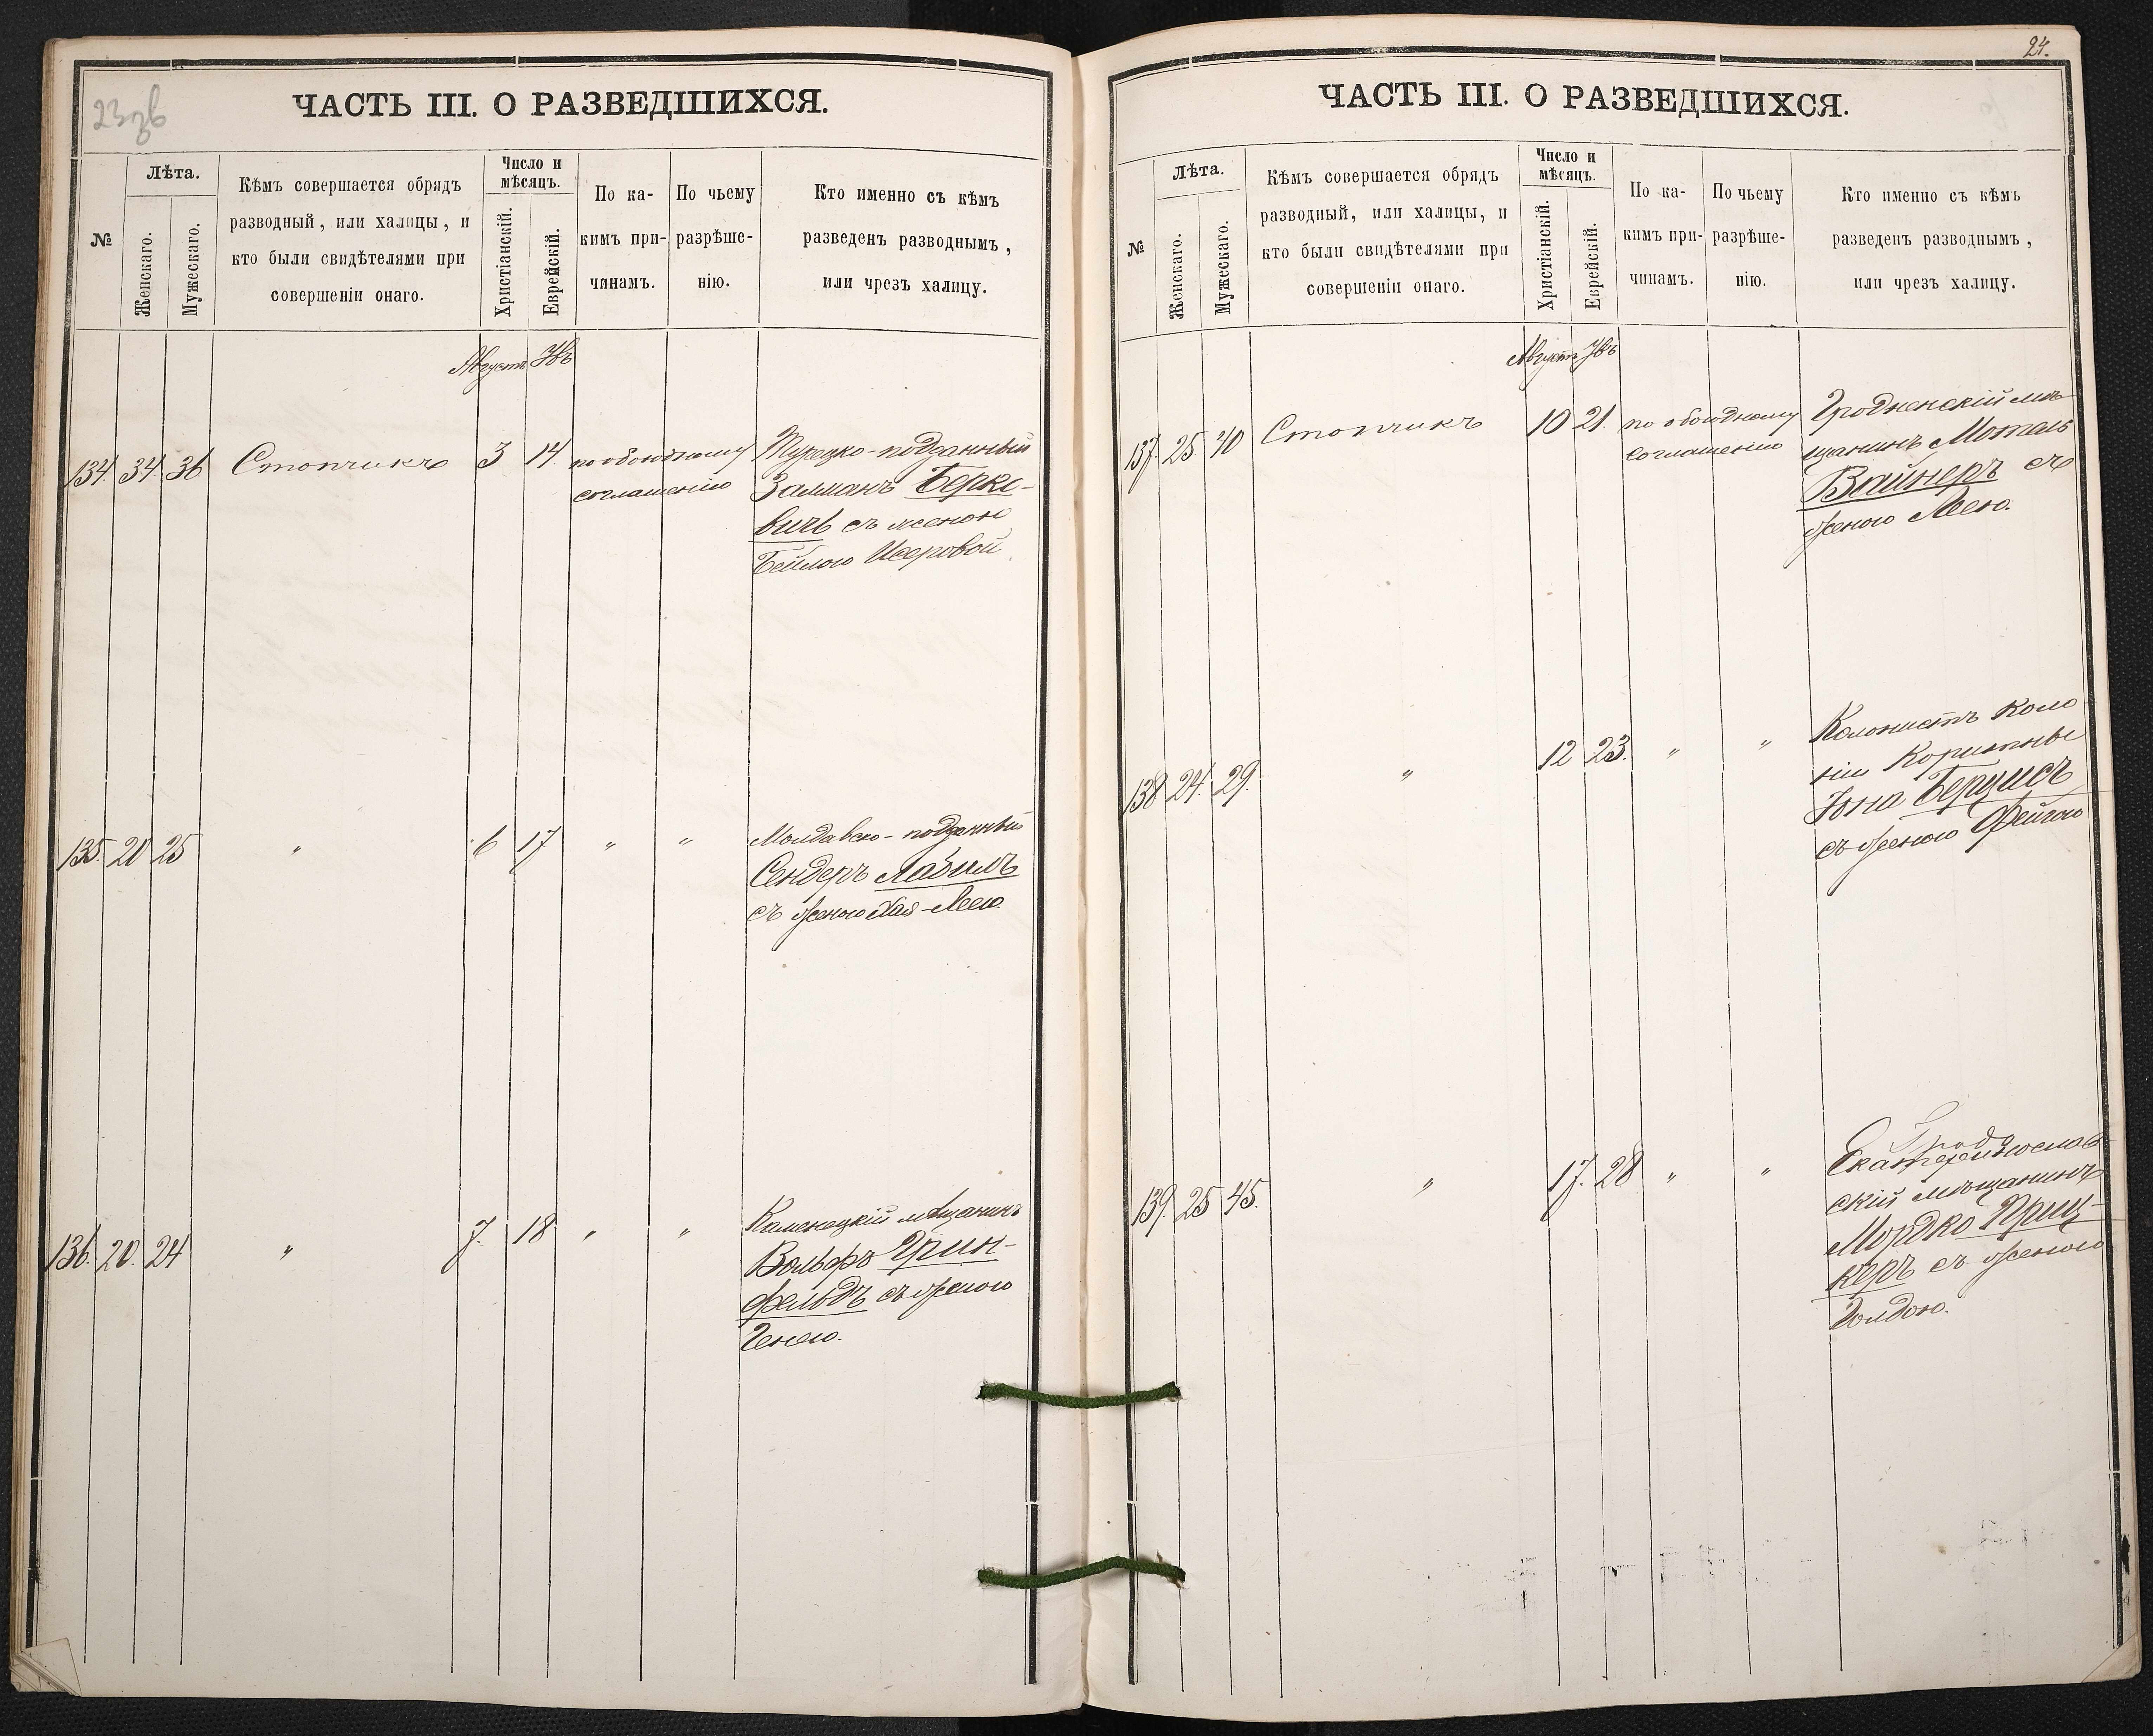 23зв
ЧАСТЬ III. О РАЗВЕДШИХСЯ.
№
Лѣта.
Женскаго.
Мужескаго.
Кѣмъ совершается обрядъ
разводный, или халицы, и
кто были свидѣтелями при
совершеніи онаго.
Число и
мѣсяцъ.
Христіанскій.
Еврейскій.
По ка-
кимъ при-
чинамъ.
По чьему
разрѣше-
нію.
Кто именно съ кѣмъ
разведенъ разводнымъ,
или чрезъ халицу.
Августъ
134. 34. 36 Стопчикъ 3 14. по обоюдному
соглашенію
Турецко-подданный
Залманъ Берко-
вичъ съ женою
Бейлою Исеровой
135. 20 25 " 6 17 " "
Молдавско-подданный
Сендеръ Лабилъ
съ женою Хая-Леею.
136. 20. 24 " 7. 18 " "
Каменецкій мѣщанинъ
Вольфъ Грин-
фельдъ съ женою
Генею.
24.
ЧАСТЬ III. О РАЗВЕДШИХСЯ.
№
Лѣта.
Женскаго.
Мужескаго.
Кѣмъ совершается обрядъ
разводный, или халицы, и
кто были свидѣтелями при
совершеніи онаго.
Число и
мѣсяцъ.
Христіанскій.
Еврейскій.
По ка-
кимъ при-
чинамъ.
По чьему
разрѣше-
нію.
Кто именно съ кѣмъ
разведенъ разводнымъ,
или чрезъ халицу.
Августъ
137. 25 40 Стопчикъ 10 21. по обоюдному
соглашенію
Гродненскій мѣ-
щанинъ Мотель
Вайнеръ съ
женою Леею.
138 24. 29. " 12 23. " "
Колонистъ коло
ніи
Іона Берцисъ
съ женою Фейгою
139. 25 45. " 17. 28 " "
Екатеринослав
скій мѣщанинъ
Мордко Приц-
керъ съ женою
Голдою.